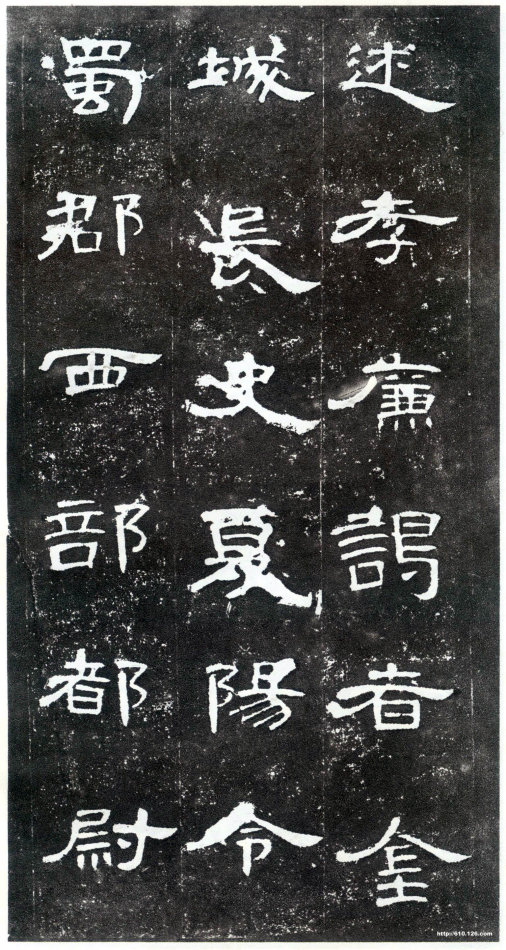 述孝廉謁者金
城長史夏陽令
蜀郡西部都尉
http://610.126.com